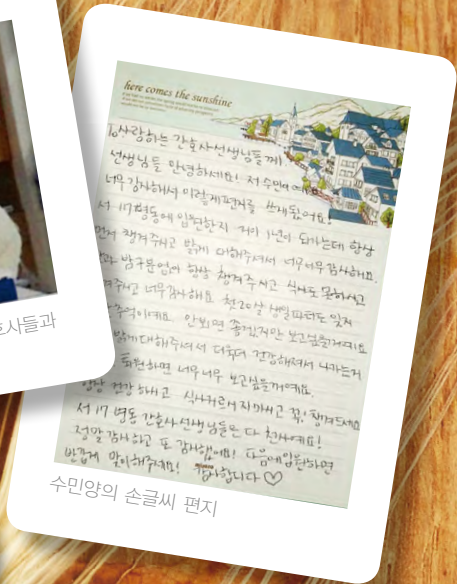 here comes the sunshine
To 사랑하는 간호사선생님들께!
선생님들 안녕하세요! 저 수민이예요
너무 감사해서 이렇게 편지를 쓰게됬어요!
서 17병동에 입원한지 거의 1년이 되가는데 항상
먼저 챙겨주시고 밝게 대해주셔서 너무너무 감사해요.
밤 구분없이 항상 챙겨주시고 식사도 못하시고
주시고 너무 감사해요 첫 20살 생일파티도 잊지
추억이예요. 안보면 좋겠지만 보고싶을거예요
밝게 대해주셔서 더욱더 건강해져서 나가는거
퇴원하면 너무너무 보고싶을거예요.
항상 건강하시고 식사거르시지마시고 꼭! 챙겨드세요
서 17 병동 간호사선생님들은 다 천사예요!
정말 감사하고 또 감사했어요! 다음에 입원하면
반갑게 맞이해주세요! 감사합니다 ♡
호사들과
수민양의 손글씨 편지